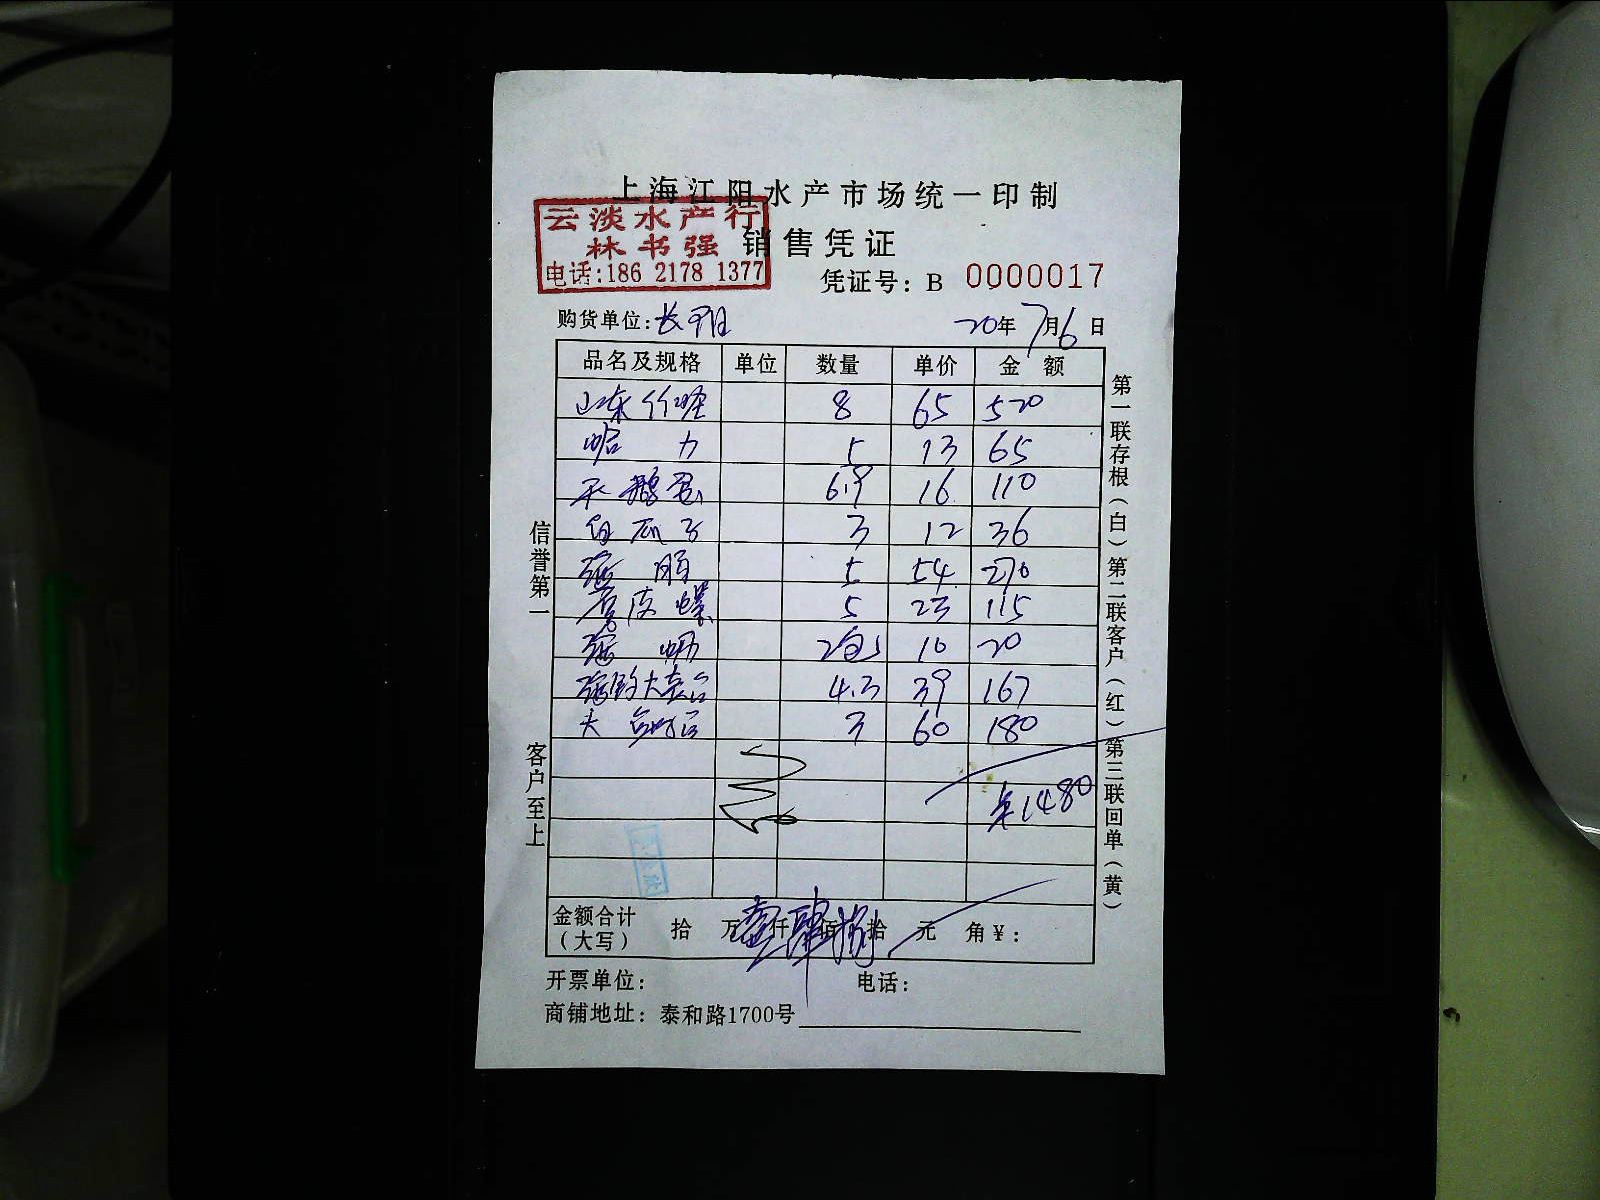 上海江阳水产市场统一印制
云淡水产行
林书强
电话:186 2178 1377
销售凭证
凭证号: B 0000017
购货单位:长阳
20年7月6日
品名及规格 单位 数量 单价 金额
山东竹蛏 8 65 520
蛤力 5 13 65
天鹅蛋 6.9 16 110
白瓜子 3 12 36
5 54 270
皮螺 5 23 115
2包 10 20
4.3 39 167
3 60 180
¥1480
金额合计(大写) 拾万壹仟肆佰捌拾元角¥:
开票单位: 电话:
商铺地址: 泰和路1700号
信誉第一 客户至上
第一联存根(白)第二联客户(红)第三联回单(黄)